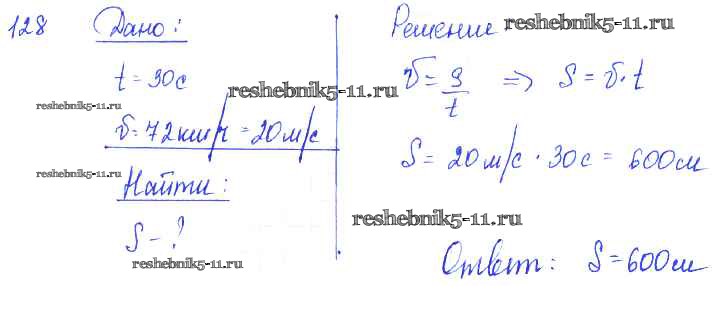 128 Дано:
t = 30с
reshebnik5-11.ru
v = 72 км/ч = 20 м/с
reshebnik5-11.ru
Найти:
S - ?
reshebnik5-11.ru
Решение reshebnik5-11.ru
v = S/t => S = v · t
reshebnik5-11.ru
S = 20 м/с · 30с = 600 м
reshebnik5-11.ru
Ответ: S = 600 м